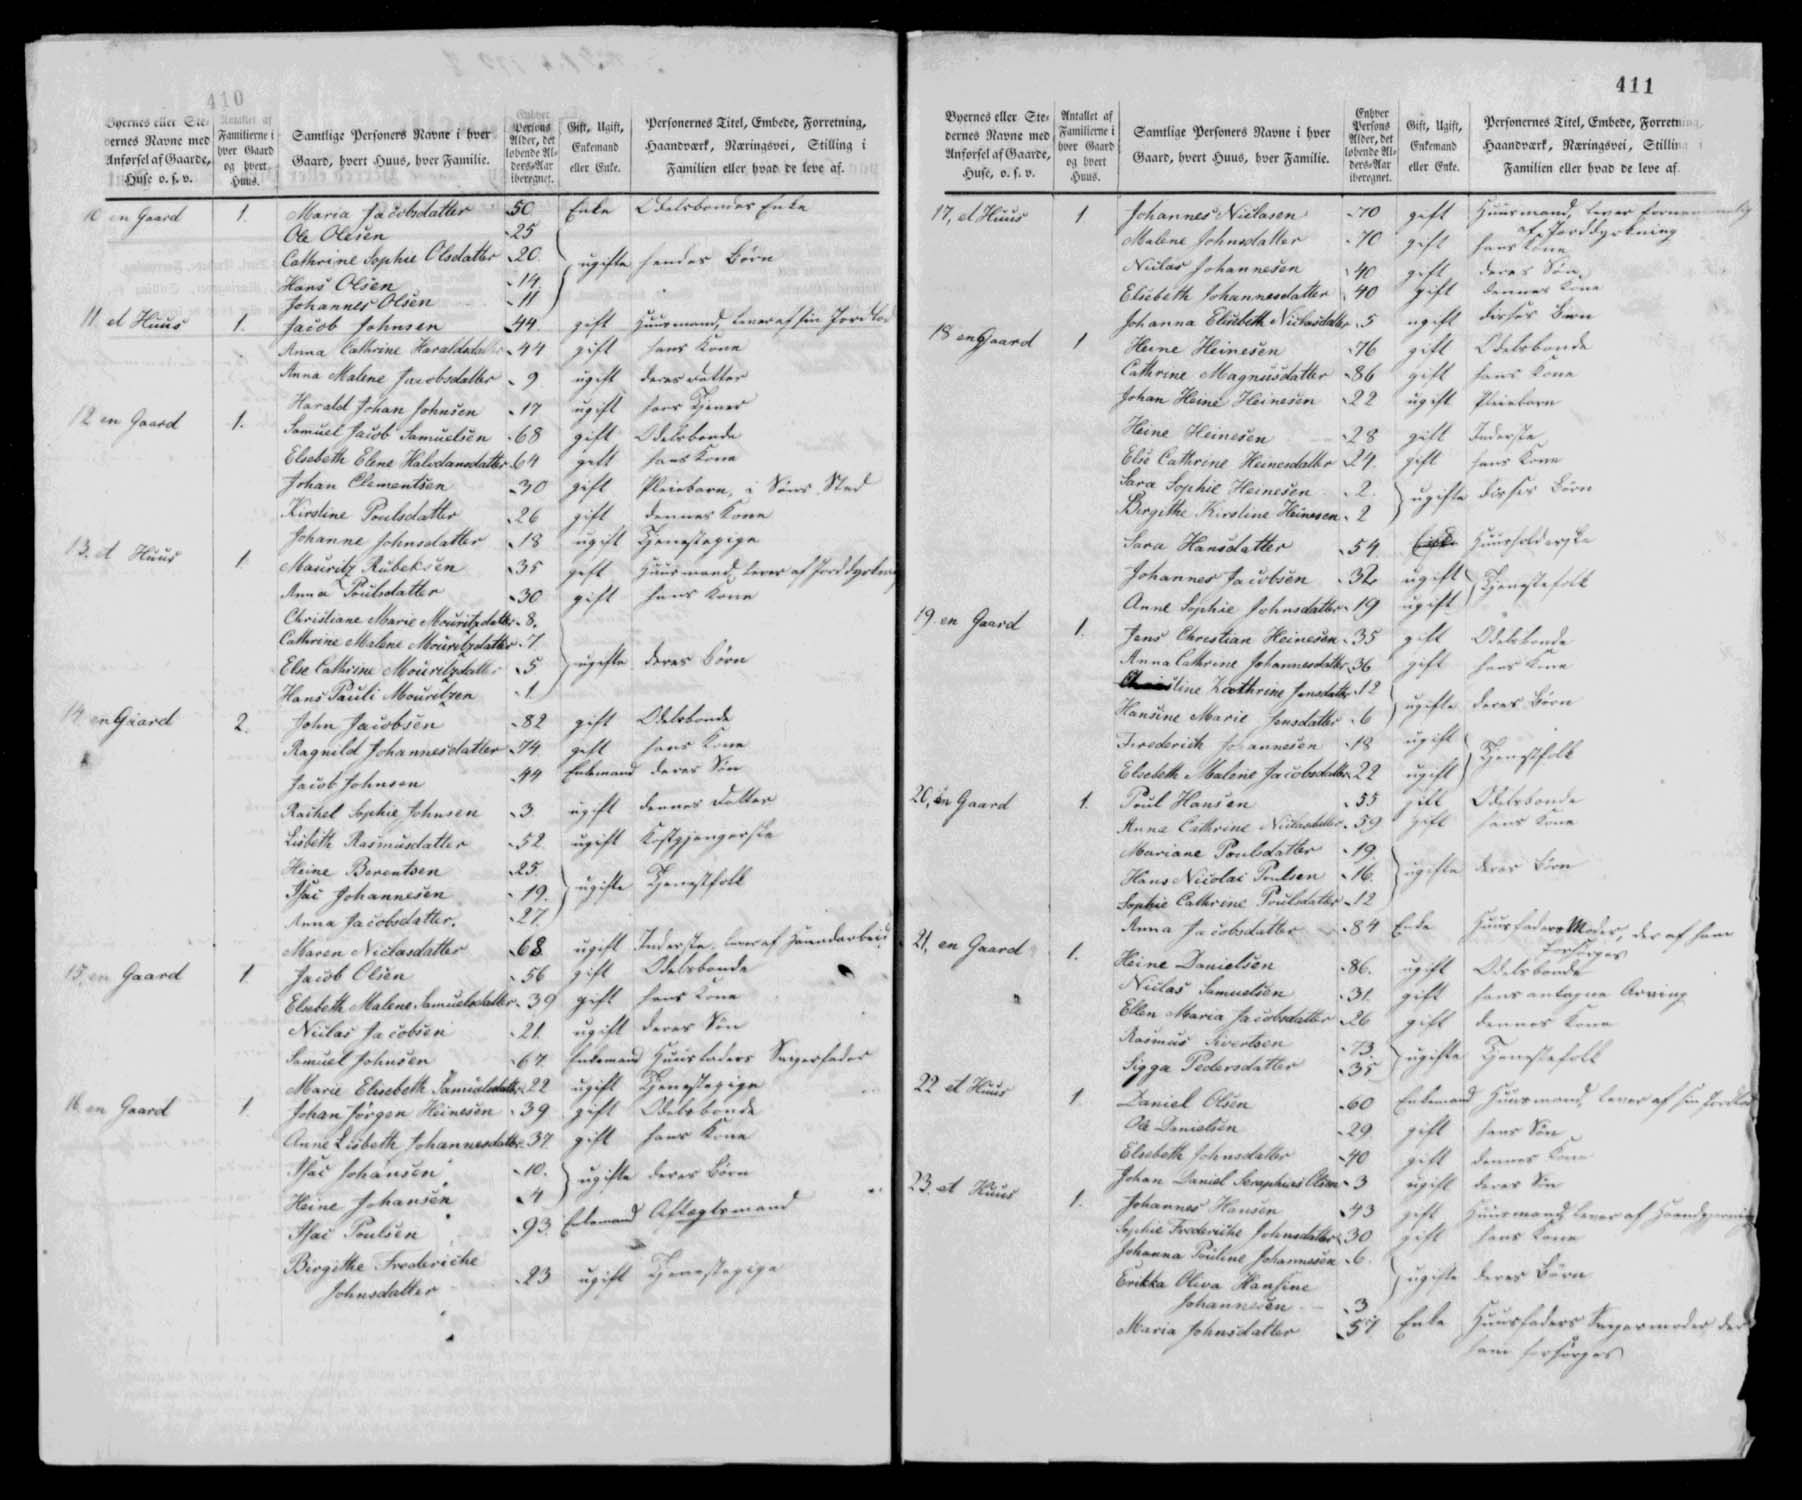 410
Byernes eller Ste-
dernes Navne med
Anførsel af Gaarde,
Huse o. s. v.
Antallet af
Familierne i
hver Gaard
og hvert
Huus.
Samtlige Personers Navne i hver
Gaard, hvert Huus, hver Familie.
Enhver
Persons
Alder, det
løbende Al-
ders-Aar
iberegnet.
Gift, Ugift,
Enkemand
eller Enke.
Personernes Titel, Embede, Forretning,
Haandværk, Næringsvei, Stilling i
Familien eller hvad de leve af.
10 en Gaard 1. Maria Jacobsdatter 50 Enke Odelsbondes Enke
Ole Olesen 25
Cathrine Sophie Olsdatter 20. ugifte hendes Børn
Hans Olsen 14
Johannes Olsen 11
11 et Huus 1. Jacob Johnsen 44. gift Huusmand, lever af sin Jordlod
Anna Cathrine Haraldsdatter 44 gift hans Kone
Anna Malene Jacobsdatter 9 ugift deres Datter
Harald Johan Johnsen 17 ugift hans Tjener
12 en Gaard 1. Samuel Jacob Samuelsen 68 gift Odelsbonde
Elsebeth Elene Halvdansdatter 64 gift hans Kone
Johan Clementsen 30 gift Pleiebarn, i Søns Sted
Kirstine Poulsdatter 26 gift dennes Kone
Johanne Johnsdatter 18 ugift Tjenestepige
13. et Huus 1 Mauritz Rubeksen 35 gift Huusmand, lever af Jorddyrkning
Anna Poulsdatter 30 gift hans Kone
Christiane Marie Mouritzdatter 8.
Cathrine Malene Mouritzdatter 7
Else Cathrine Mouritzdatter 5 ugifte deres Børn
Hans Pauli Mouritzen 1
14 en Gaard 2. John Jacobsen 82 gift Odelsbonde
Ragnild Johannesdatter 74 gift hans Kone
Jacob Johnsen 44 Enkemand deres Søn
Rachel Sophie Johnsen 3 ugift dennes Datter
Lisbeth Rasmusdatter 52. ugift Kostgjængerske
Heine Berentsen 25.
Isac Johannesen 19. ugifte Tjenestfolk
Anna Jacobsdatter. 27
Maren Niclasdatter 68 ugift Inderste, lever af Haandarbeid
15, en Gaard 1 Jacob Olsen 56 gift Odelsbonde
Elsebeth Malene Samuelsdatter 39 gift hans Kone
Niclas Jacobsen 21 ugift deres Søn
Samuel Johnsen 67 Enkemand Huusfaders Svigerfader
Marie Elisebeth Samuelsdatter 22 ugift Tjenestepige
16 en Gaard 1. Johan Jørgen Heinesen 39 gift Odelsbonde
Anne Lisbeth Johannesdatter 37 gift hans Kone
Isac Johansen 10. ugifte deres Børn
Heine Johansen 4
Isac Poulsen 93. Enkemand Aftægtsmand
Birgithe Frederiche
Johnsdatter 23 ugift Tjenestepige
411
Byernes eller Ste-
dernes Navne med
Anførsel af Gaarde,
Huse, o. s. v.
Antallet af
Familierne i
hver Gaard
og hvert
Huus.
Samtlige Personers Navne i hver
Gaard, hvert Huus, hver Familie.
Enhver
Persons
Alder, det
løbende Al-
ders-Aar
iberegnet.
Gift, Ugift,
Enkemand
eller Enke.
Personernes Titel, Embede, Forretning,
Haandværk, Næringsvei, Stilling i
Familien eller hvad de leve af.
17, et Huus 1 Johannes Niclasen 70 gift Huusmand, lever fornemmelig
af Jorddyrkning
Malene Johnsdatter 70 gift hans Kone
Niclas Johannesen 40 gift deres Søn
Elsebeth Johannesdatter 40 gift dennes Kone
Johanna Elisebeth Niclasdatter 5 ugift disses Barn
18 en Gaard 1 Heine Heinesen 76 gift Odelsbonde
Cathrine Magnusdatter 86 gift hans Kone
Johan Heine Heinesen 22 ugift Pleiebarn
Heine Heinesen 28 gift Inderste
Else Cathrine Heinesdatter 24. gift hans Kone
Sara Sophie Heinesen 2. ugifte disses Børn
Birgithe Kirstine Heinesen 2
Sara Hansdatter 54 Huusholderske
Johannes Jacobsen 32 ugift Tjenestefolk
Anne Sophie Johnsdatter 19 ugift
19 en Gaard 1. Jens Christian Heinesen 35 gift Odelsbonde
Anna Cathrine Johannesdatter 36 gift hans Kone
Kathrine Jensdatter 12 ugifte deres Børn
Hansine Marie Jensdatter 6
Frederich Johannesen 18 ugift Tjenestfolk
Elsebeth Malene Jacobsdatter 22 ugift
20, en Gaard 1. Poul Hansen 55 gift Odelsbonde
Anna Cathrine Niclasdatter 59 gift hans Kone
Mariane Poulsdatter 19.
Hans Nicolai Poulsen 16. ugifte deres Børn
Sophie Cathrine Poulsdatter 12
Anna Jacobsdatter 84 Enke Huusfaders Moder, der af ham
forsørges
21, en Gaard 1. Heine Danielsen 86. ugift Odelsbonde
Niclas Samuelsen 31. gift hans antagne Arving
Ellen Maria Jacobsdatter 26 gift dennes Kone
Rasmus Sivertsen 73. ugifte Tjenestefolk
Sigga Pedersdatter 35
22 et Huus 1. Daniel Olsen 60 Enkemand Huusmand, lever af sin Jordlod
Ole Danielsen 29 gift hans Søn
Elsebeth Johnsdatter 40 gift dennes Kone
Johan Daniel Seraphius Olsen 3 ugift deres Søn
23. et Huus 1. Johannes Hansen 43 gift Huusmand, lever af Haandgjerning
Sophie Frederiche Johnsdatter 30 gift hans Kone
Johanna Pouline Johannesen 6. ugifte deres Børn
Erikka Oliva Hansine
Johannesen 3
Maria Johnsdatter 57 Enke Huusfaders Svigermoder der
ham forsørges